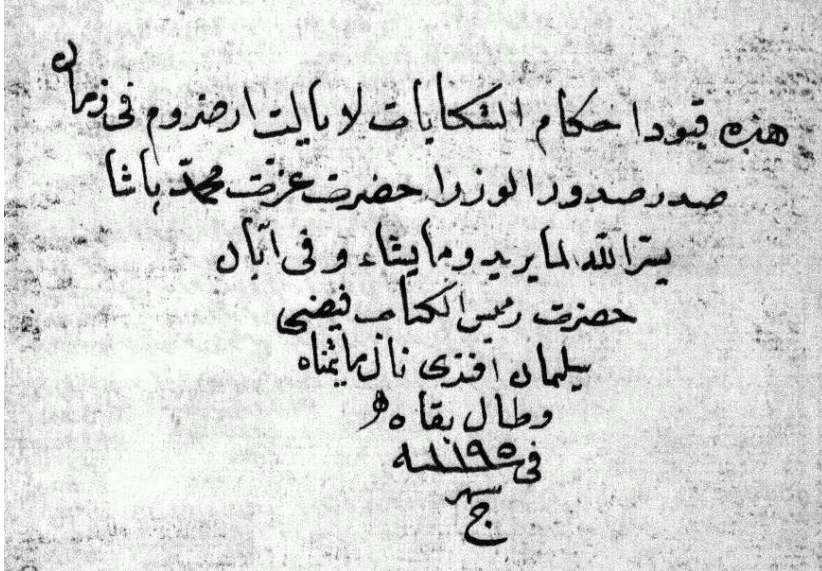 هذه قيود احكام الشكايات لايالت ارضروم فى زمان
صدر صدور الوزرا حضرت عزت محمد پاشا
يسر الله لما يريد وما يشاء و فى آبان
حضرت رئيس الكتاب فيضى
سليمان افندى نال ما يتمناه
وطال بقاه
فى ١١٩٥ سنه
ج